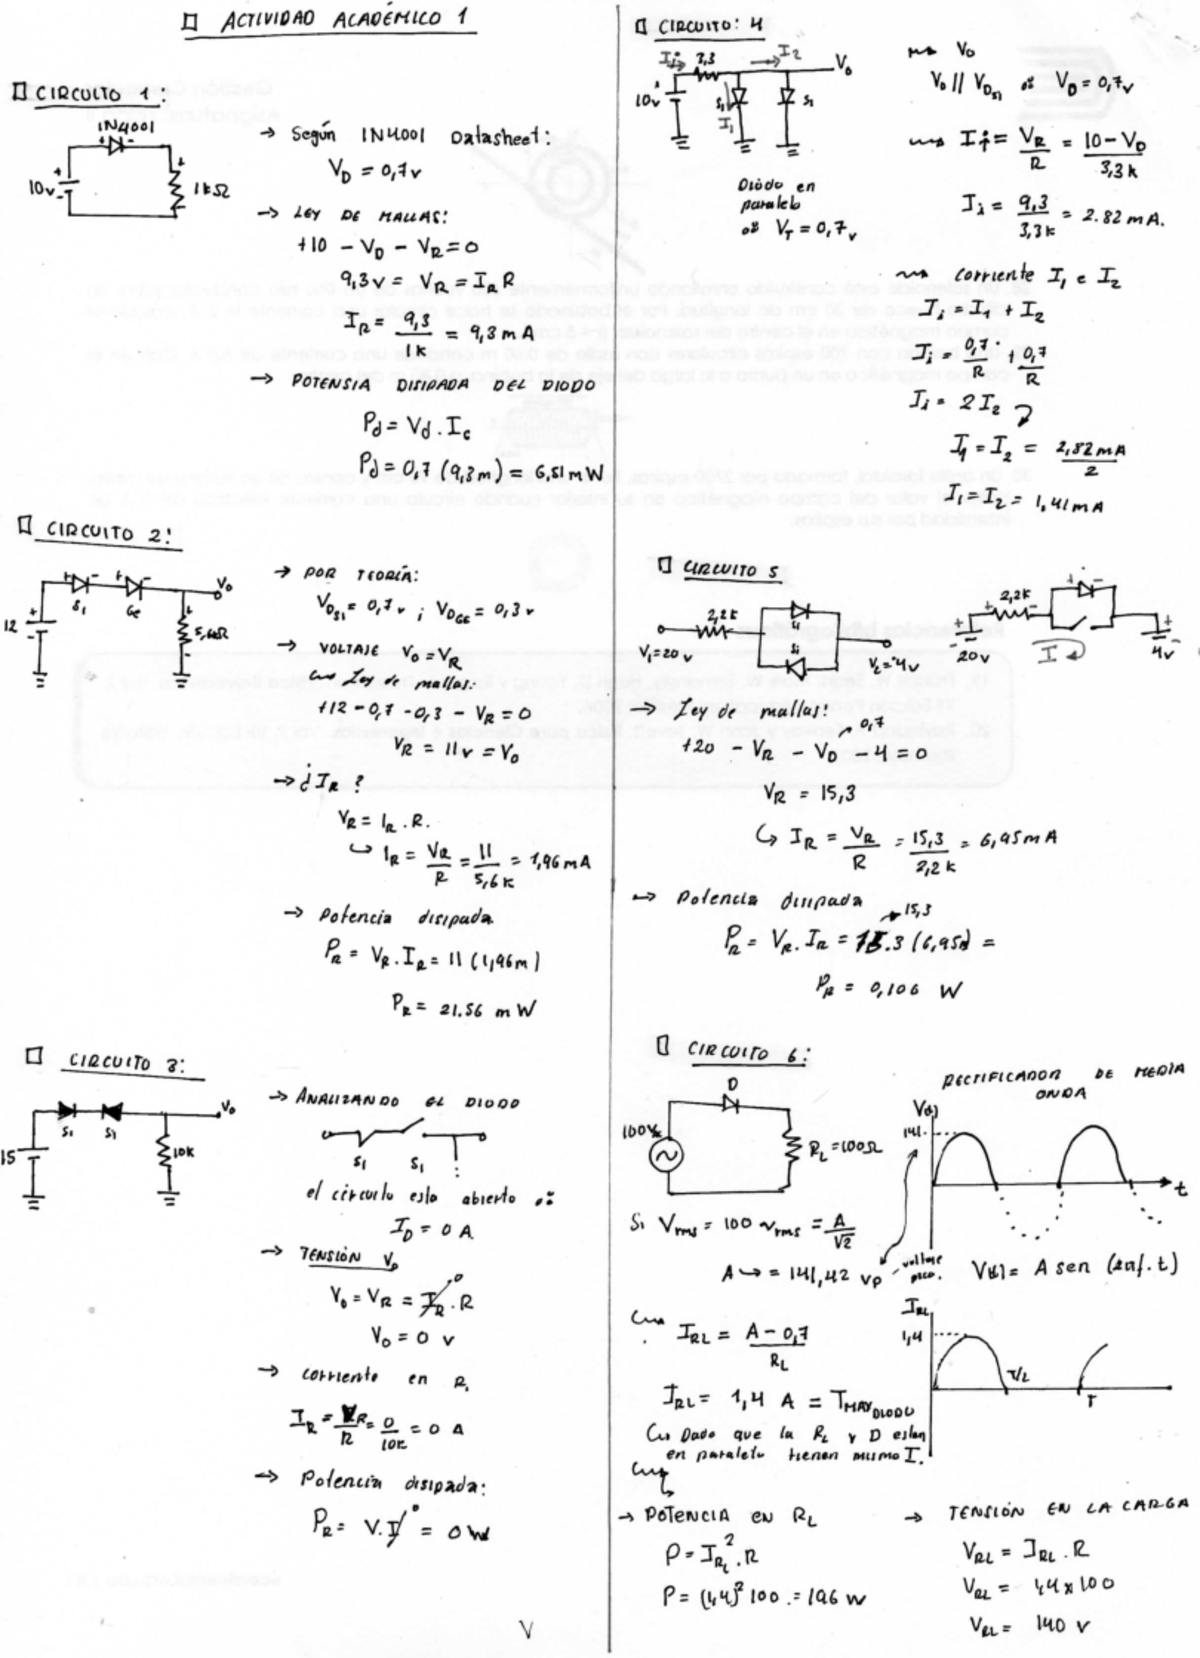 ACTIVIDAD ACADÉMICO 1
CIRCUITO 1:
1N4001
10v
1kΩ
→ Según 1N4001 Datasheet:
V_D = 0,7v
→ LEY DE MALLAS:
+10 - V_D - V_R = 0
9,3v = V_R = I_R R
I_R = 9,3/1k = 9,3 mA
→ POTENSIA DISIDADA DEL DIODO
P_d = V_d . I_c
P_d = 0,7 (9,3m) = 6,51 mW
CIRCUITO 2:
12
Si
Ge
Vo
5,6kΩ
→ POR TEORÍA:
V_DSi = 0,7v ; V_DGE = 0,3v
→ VOLTAJE Vo = V_R
Ley de mallas:
+12 - 0,7 - 0,3 - V_R = 0
V_R = 11v = Vo
→ ¿I_R?
V_R = I_R . R.
I_R = V_R/R = 11/5,6k = 1,96 mA
→ Potencia disipada
P_R = V_R . I_R = 11 (1,96m)
P_R = 21.56 mW
CIRCUITO 3:
15
Si
Si
Vo
10K
→ ANALIZANDO EL DIODO
Si
Si
el circuito esta abierto ∴
I_D = 0 A
→ TENSIÓN Vo
Vo = V_R = I_R . R
0
Vo = 0 v
→ corriente en R.
I_R = V_R/R = 0/10K = 0 A
→ Potencia disipada:
P_R = V.I = 0 W
0
V
CIRCUITO: 4
Ii
3,3
I2
Vo
10v
Si
Si
I1
Diodo en
paralelo
∴ V_T = 0,7v
Vo
Vo // V_DSi ∴ V_D = 0,7v
Ii = V_R/R = 10 - V_D/3,3k
Ii = 9,3/3,3k = 2.82 mA.
corriente I1 e I2
Ii = I1 + I2
Ii = 0,7/R + 0,7/R
Ii = 2 I2
I1 = I2 = 2,82mA/2
I1 = I2 = 1,41 mA
CIRCUITO 5
2,2k
Si
Si
V1 = 20v
Vo = 4v
2,2k
20v
I
4v
→ Ley de mallas:
0,7
+20 - V_R - V_D - 4 = 0
V_R = 15,3
I_R = V_R/R = 15,3/2,2k = 6,95mA
→ Potencia disipada
15,3
P_R = V_R . I_R = 15.3 (6,95) =
P_R = 0,106 W
CIRCUITO 6:
D
100V
R_L = 100Ω
RECTIFICADOR DE MEDIA
ONDA
V(t)
141
t
Si V_rms = 100 v_rms = A/√2
A = 141,42 Vp
voltaje
pico.
V(t) = A sen (2πf.t)
I_RL = A - 0,7/R_L
I_RL
1,4
T/2
T
I_RL = 1,4 A = I_MAX DIODO
Dado que la R_L y D estan
en paralelo tienen mismo I.
→ POTENCIA EN R_L
P = I_RL² . R
P = (1,4)² 100 = 196 W
→ TENSIÓN EN LA CARGA
V_RL = I_RL . R
V_RL = 1,4 x 100
V_RL = 140 v